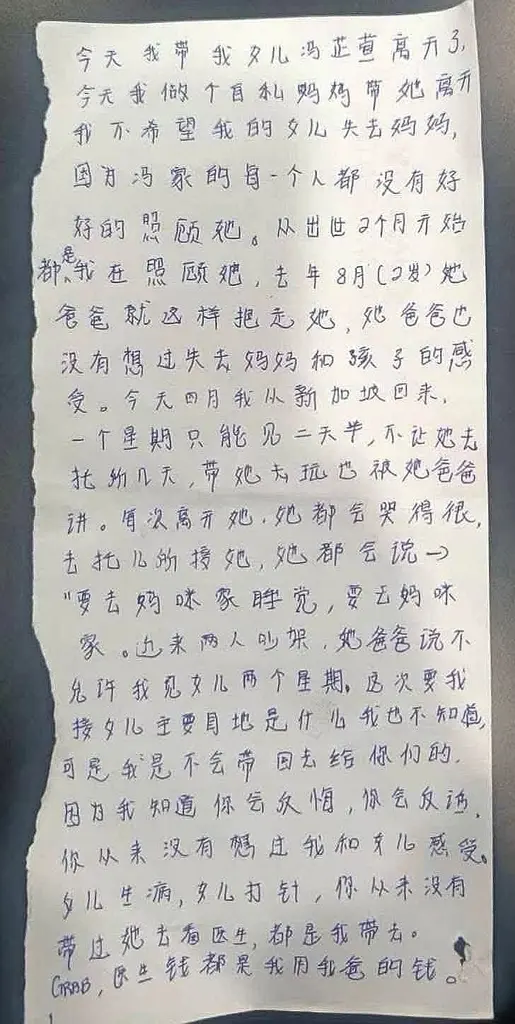 今天我带我女儿冯芷萱离开了,
今天我做个自私妈妈带她离开
我不希望我的女儿失去妈妈,
因为冯家的每一个人都没有好
好的照顾她。从出世2个月开始
都是我在照顾她,去年8月(2岁)她
爸爸就这样抱走她,她爸爸也
没有想过失去妈妈和孩子的感
受。今天四月我从新加坡回来,
一个星期只能见二天半,不让她去
托所几天,带她去玩也被她爸爸
讲。每次离开她,她都会哭得很,
去托儿所接她,她都会说→
"要去妈咪家睡觉,要去妈咪
家。近来两人吵架,她爸爸说不
允许我见女儿两个星期。这次要我
接女儿主要目地是什么我也不知道,
可是我是不会带回去给你们的.
因为我知道你会反悔,你会反话,
你从来没有想过我和女儿感受。
女儿生病,女儿打针,你从来没有
带过她去看医生,都是我带去。
GRAB,医生钱都是我用我爸的钱。